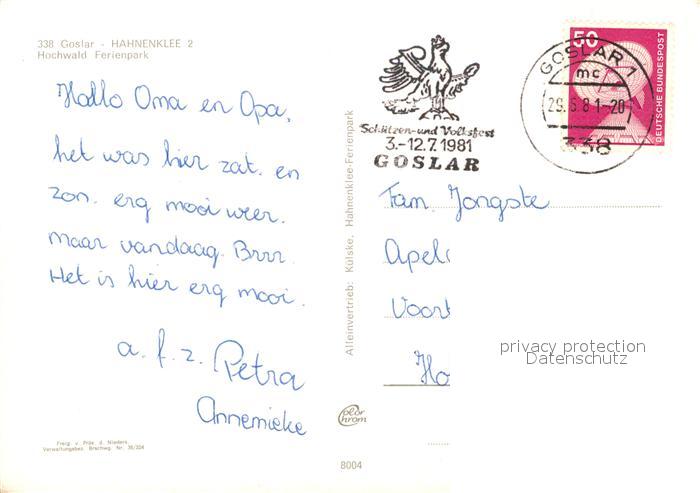 338 Goslar - HAHNENKLEE 2
Hochwald Ferienpark
Hallo Oma en Opa,
het was hier zat. en
zon. erg mooi weer.
maar vandaag. Brrr.
Het is hier erg mooi.
a. f. z. Petra
Annemieke
Freig. v. Präs. d. Nieders.
Verwaltungsbez. Brschwg. Nr. 36/324
Alleinvertrieb: Külske, Hahnenklee-Ferienpark
color
chrom
8004
Schützen- und Volksfest
3.-12.7.1981
GOSLAR
GOSLAR 1
mc
29.6.81-20
338
50
DEUTSCHE BUNDESPOST
Fam. Jongste
Apel
Voort
Ho
privacy protection
Datenschutz